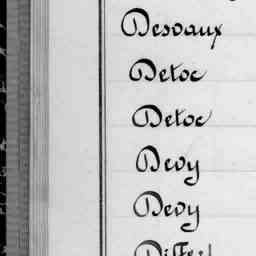 Desvaux
Detoc
Detoc
Devy
Devy